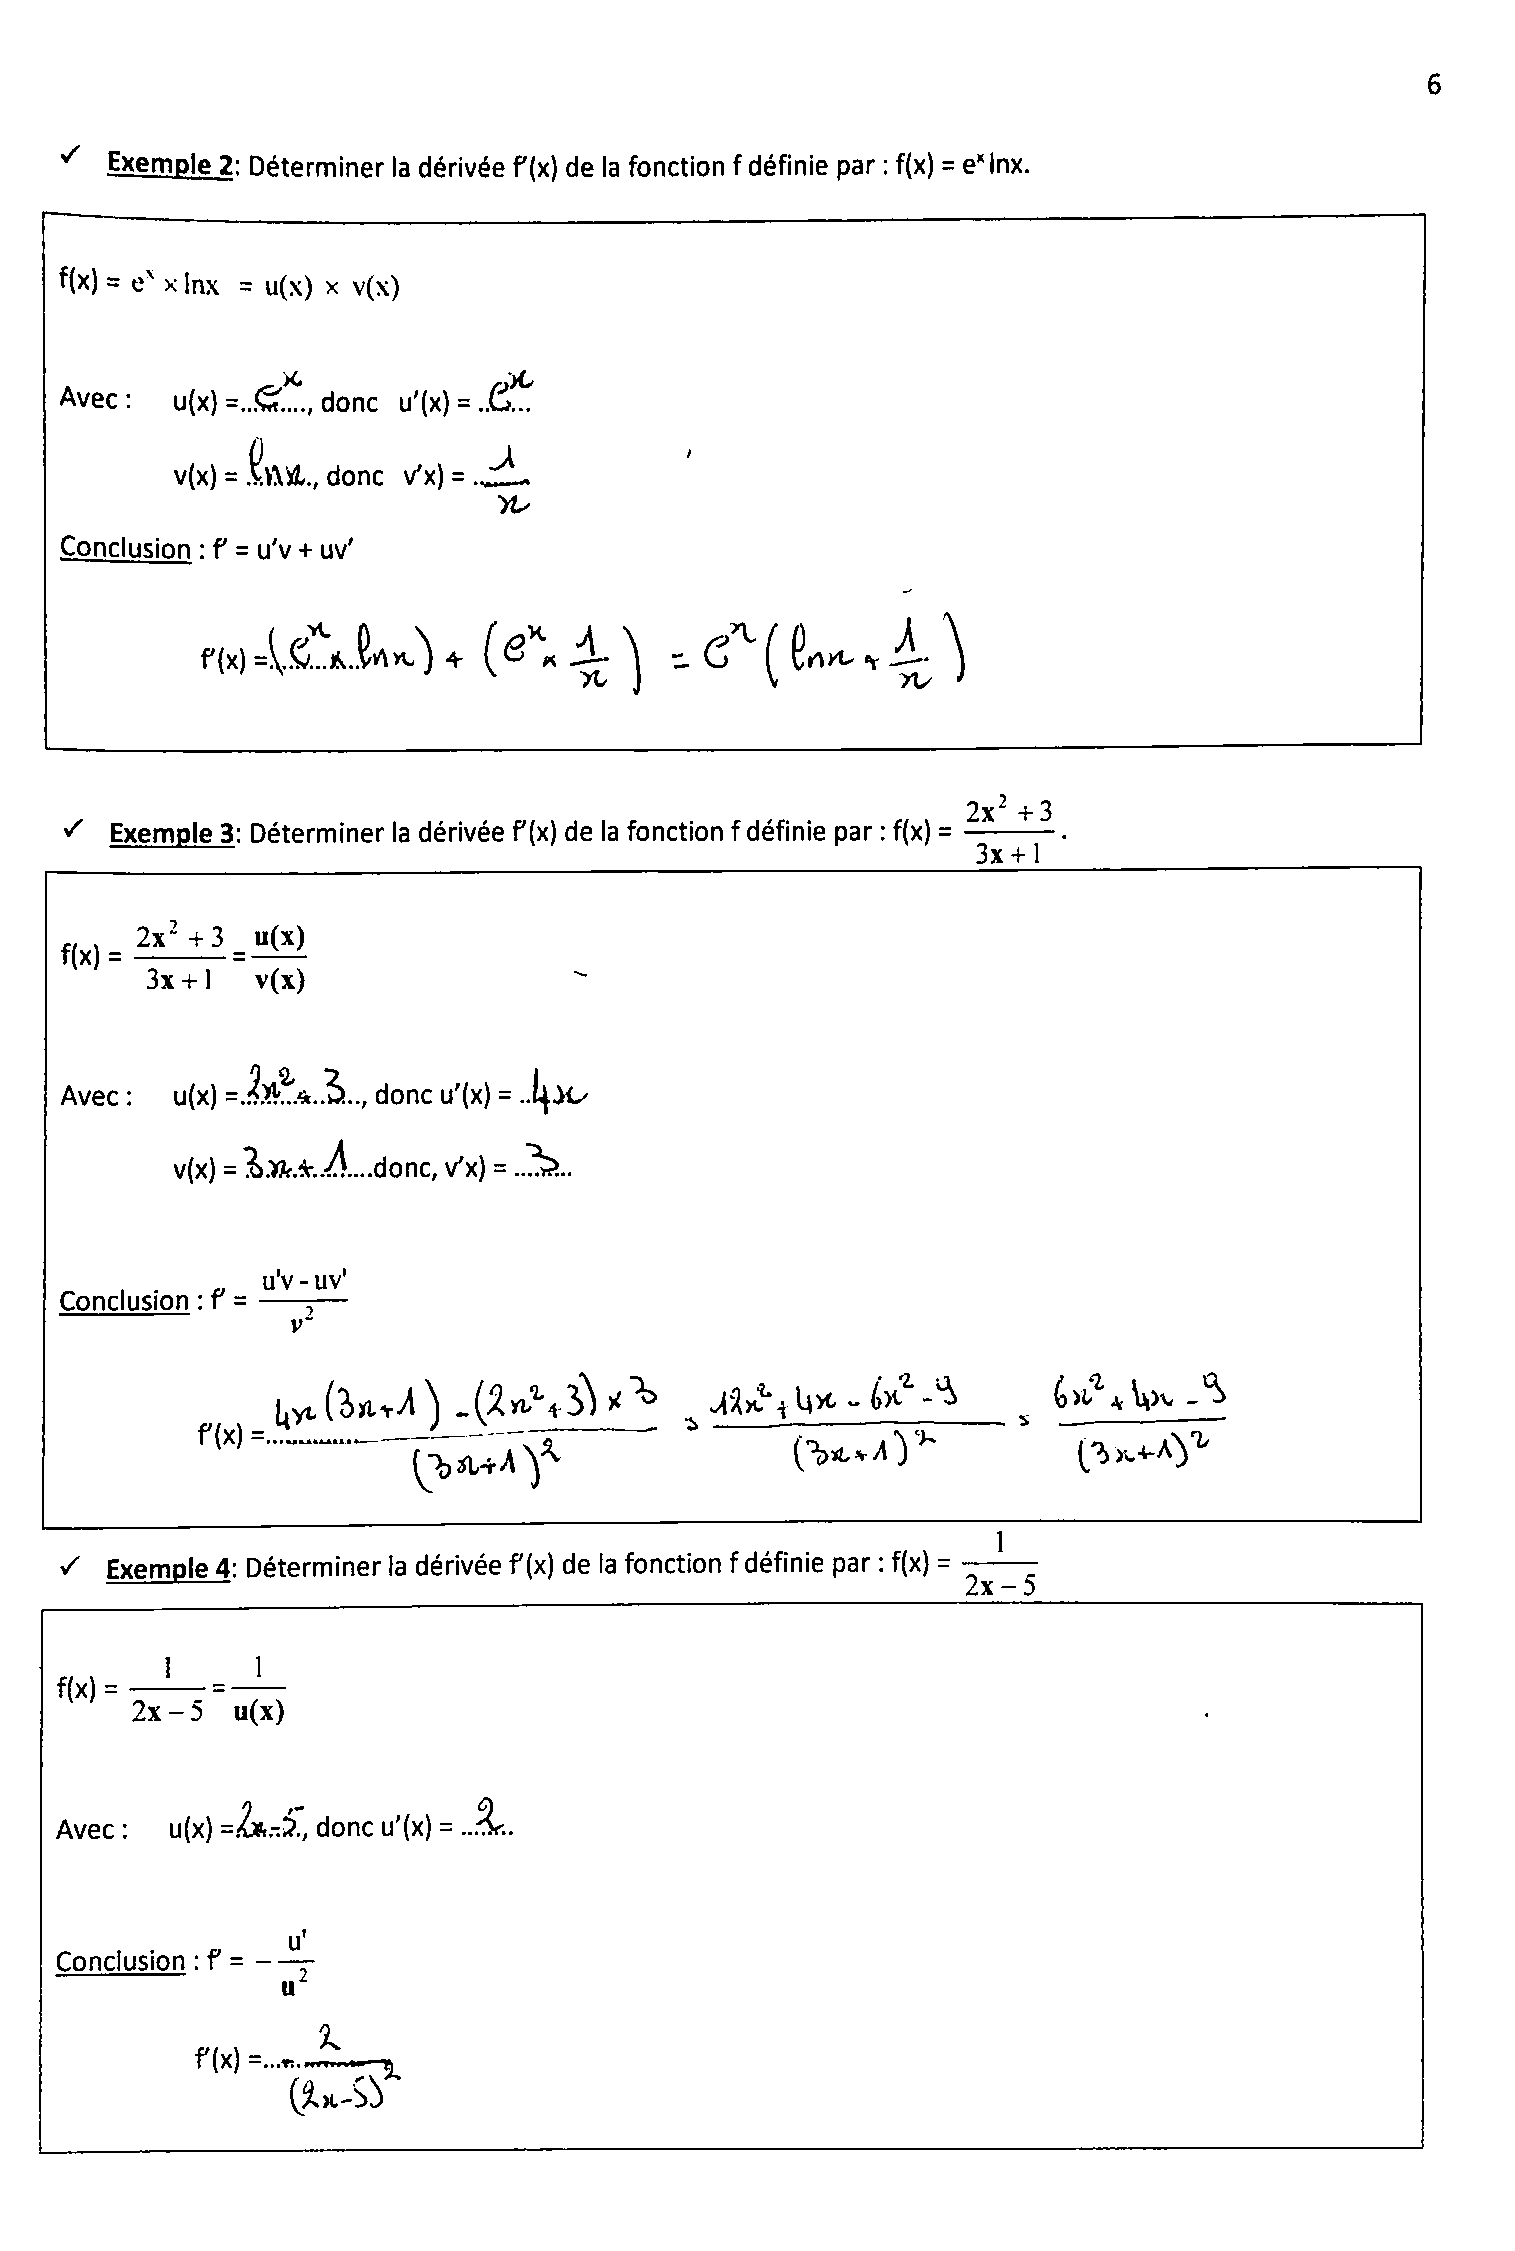 6
✓ Exemple 2: Déterminer la dérivée f'(x) de la fonction f définie par : f(x) = eˣ lnx.
f(x) = eˣ × lnx = u(x) × v(x)
Avec : u(x) =...eˣ...., donc u'(x) = ..eˣ...
v(x) = ..lnx.., donc v'x) = ..1/x
Conclusion : f' = u'v + uv'
f'(x) = (eˣ × lnx) + (eˣ × 1/x) = eˣ (lnx + 1/x)
✓ Exemple 3: Déterminer la dérivée f'(x) de la fonction f définie par : f(x) = (2x² + 3)/(3x + 1).
f(x) = (2x² + 3)/(3x + 1) = u(x)/v(x)
Avec : u(x) = 2x² + 3..., donc u'(x) = ..4x
v(x) = 3x + 1....donc, v'x) = ....3...
Conclusion : f' = (u'v - uv')/v²
f'(x) = (4x(3x+1) - (2x²+3) × 3)/(3x+1)² = (12x² + 4x - 6x² - 9)/(3x+1)² = (6x² + 4x - 9)/(3x+1)²
✓ Exemple 4: Déterminer la dérivée f'(x) de la fonction f définie par : f(x) = 1/(2x – 5)
f(x) = 1/(2x – 5) = 1/u(x)
Avec : u(x) = 2x - 5., donc u'(x) = ...2...
Conclusion : f' = – u'/u²
f'(x) =...- 2/(2x-5)²